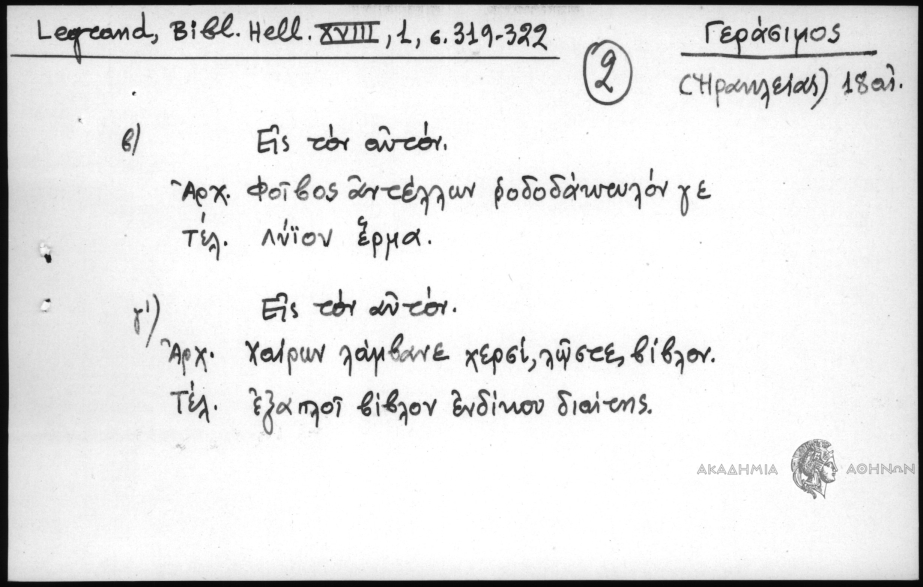 Legrand, Bibl. Hell. XVIII, 1, σ. 319-322
Γεράσιμος
2
(Ἡρακλείας) 18 αἰ.
β) Εἰς τὸν αὐτόν.
Ἀρχ. Φοῖβος ἀντέλλων ῥοδοδάκτυλόν γε
Τέλ. λύϊον ἕρμα.
γ') Εἰς τὸν αὐτόν.
Ἀρχ. Χαίρων λάμβανε χερσί, λῷστε, βίβλον.
Τέλ. ἐξαπλοῖ βίβλον ἐνδίκου διαίτης.
ΑΚΑΔΗΜΙΑ ΑΘΗΝΩΝ